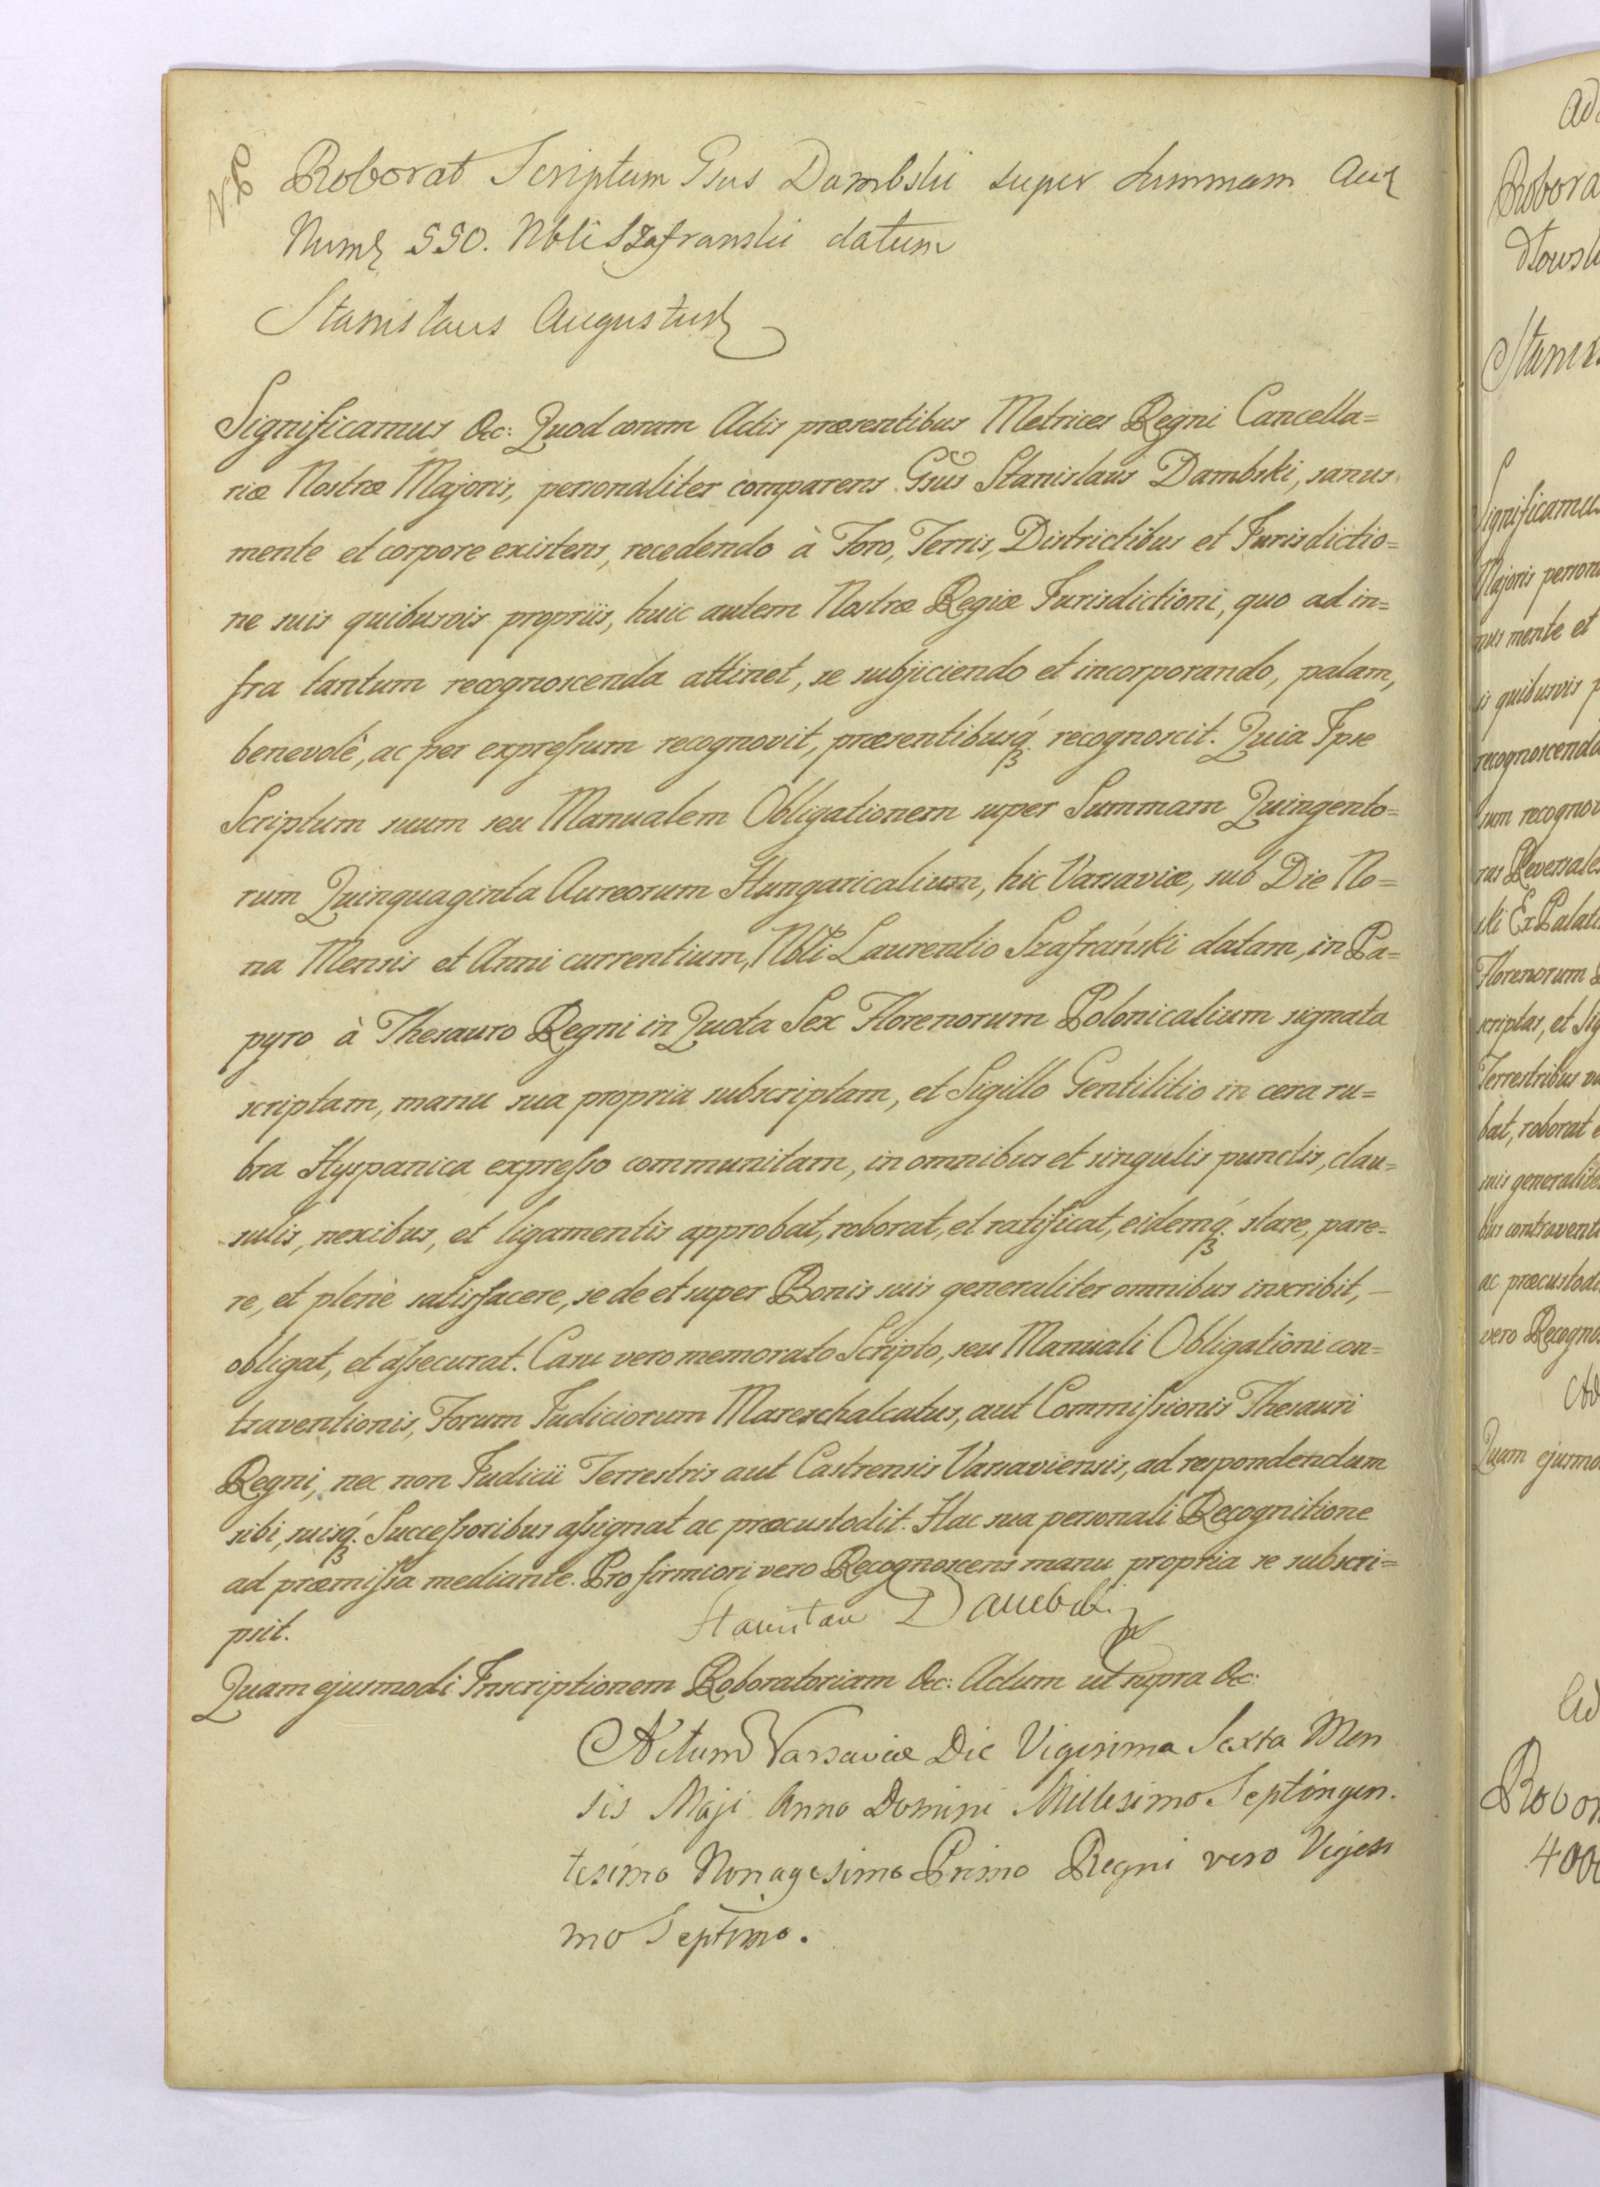 NB
Roborat Scriptum Gsus Dambski super Summam Aur
Num 550. Nbli Szafranski datum
Stanislaus Augustus
Significamus &c: Quod coram Actis præsentibus Metrices Regni Cancella=
riæ Nostræ Majoris, personaliter comparens Gsus Stanislaus Dambski, sanus
mente et corpore existens, recedendo à Foro, Terris, Districtibus et Jurisdictio=
ne suis quibusvis propriis, huic autem Nostræ Regiæ Jurisdictioni, quo ad in=
fra tantum recognoscenda attinet, se subjiciendo et incorporando, palam,
benevolè, ac per expressum recognovit, præsentibusq. recognoscit. Quia Ipse
Scriptum suum seu Manualem Obligationem super Summam Quingento=
rum Quinquaginta Aureorum Hungaricalium, hic Varsaviæ, sub Die No=
na Mensis et Anni currentium, Nbli Laurentio Szafrański datam, in Pa=
pyro à Thesauro Regni in Quota Sex Florenorum Polonicalium signata
scriptam, manu sua propria subscriptam, et Sigillo Gentilitio in cera ru=
bra Hyspanica expresso communitam, in omnibus et singulis punctis, clau=
sulis, nexibus, et ligamentis approbat, roborat, et ratificat, eidemq. stare, pare=
re, et plenè satisfacere, se de et super Bonis suis generaliter omnibus inscribit, –
obligat, et assecurat. Casu vero memorato Scripto, seu Manuali Obligationi con=
traventionis, Forum Judiciorum Mareschalcatus, aut Commissionis Thesauri
Regni, nec non Judicii Terrestris aut Castrensis Varsaviensis, ad respondendum
sibi, suisq. Successoribus assignat ac præcustodit. Hac sua personali Recognitione
ad præmissa mediante. Pro firmiori vero Recognoscens manu propria se subscri=
psit.
Stanisław Dambski
Quam ejusmodi Inscriptionem Roboratoriam &c: Actum ut supra &c:
Actum Varsaviæ Die Vigesima Sexta Men
sis Maji Anno Domini Millesimo Septingen.
tesimo Nonagesimo Primo Regni vero Vigesi
mo Septimo.
Significamus
Majoris person
nus mente et
is quibusvis p
recognoscenda
sum recognov
ras Reversales
ski Ex Palati
Florenorum
scriptas, et Sig
Terrestribus
bat, roborat e
suis generalite
bus contraventi
ac præcustodi
vero Recogno
Quam ejusmo
Robor
4000